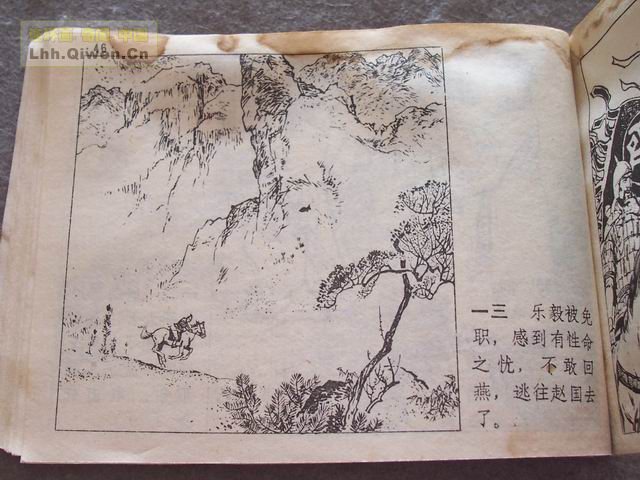 Lhh.Qiwen.Cn
46
一三　乐毅被免
职，感到有性命
之忧，不敢回
燕，逃往赵国去
了。